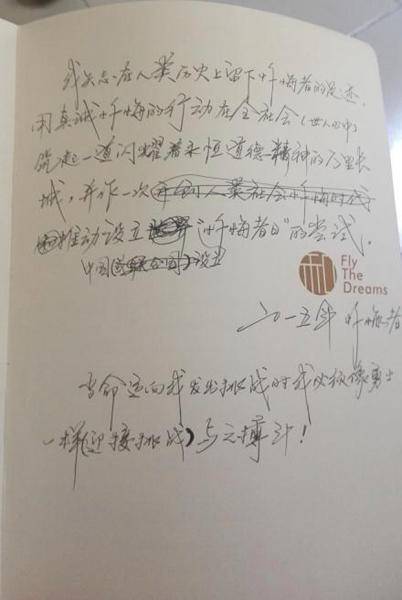 我矢志在人类历史上留下忏悔者的足迹，
用真诚忏悔的行动在全社会(世人心中)
筑起一道闪耀着永恒道德精神的万里长
城，并作一次
推动设立"忏悔者日"的尝试。
中国
Fly
The
Dreams
二〇一五年 忏悔者
当命运向我发出挑战时我必须像勇士
一样(迎接挑战)与之搏斗！